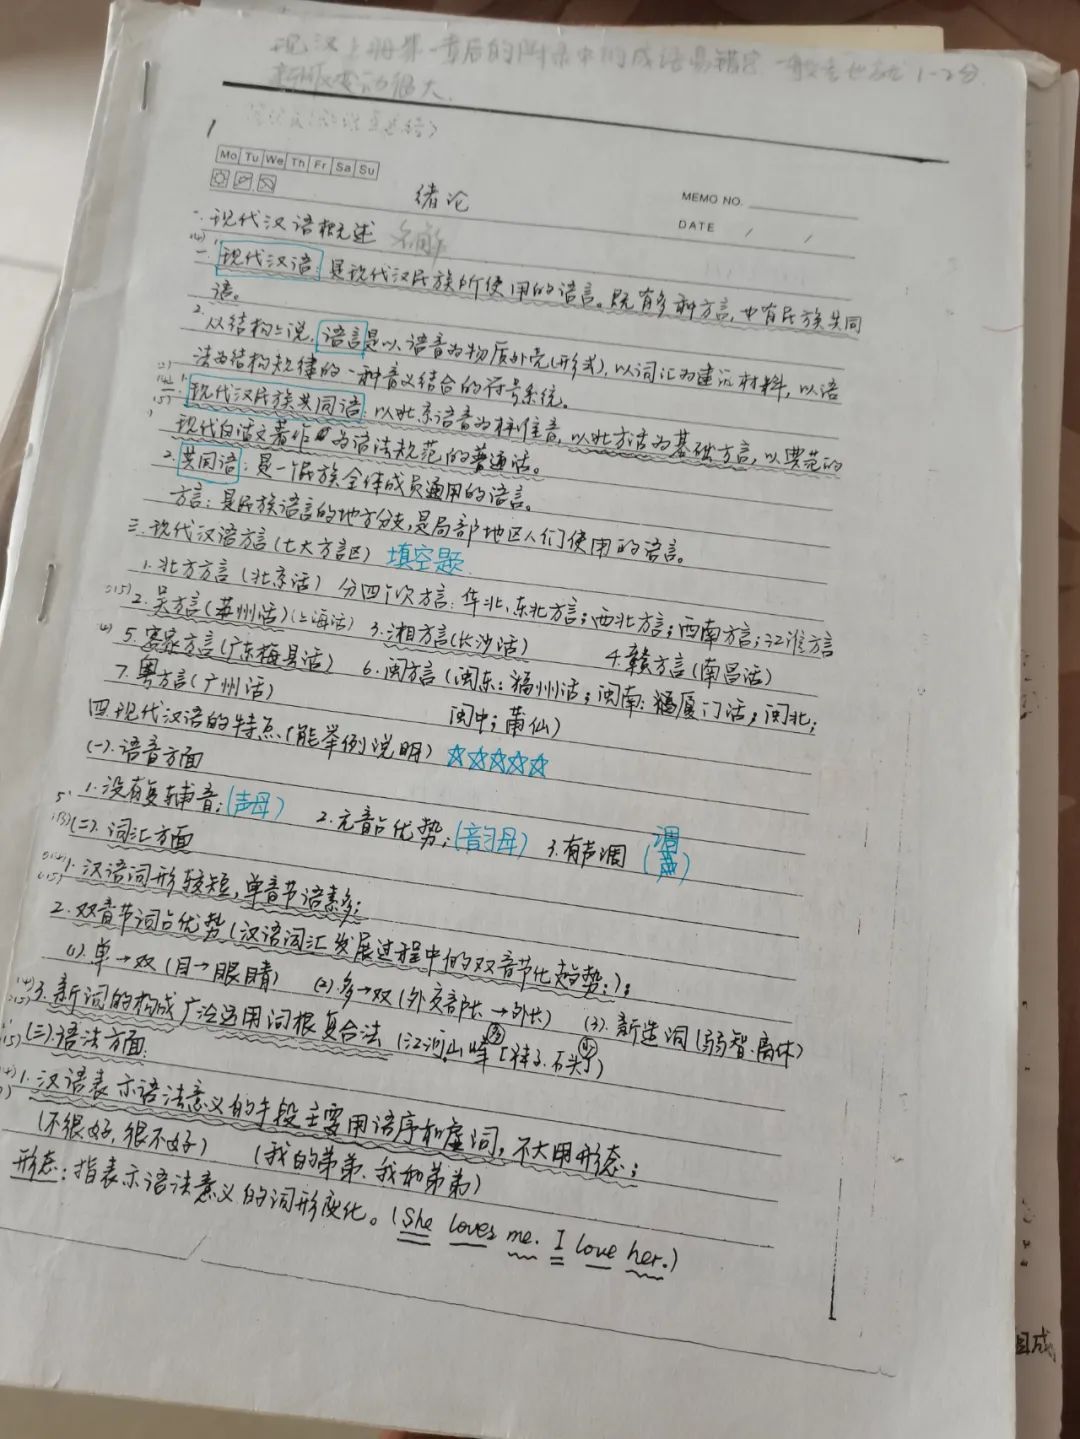 现汉上册第一章后的附录中的成语易错字一般考也就1-2分.
新版变动很大.
1
Mo Tu We Th Fr Sa Su
MEMO NO.
绪论
DATE / /
一.现代汉语概述 名解
1.现代汉语:是现代汉民族所使用的语言。既有多种方言,也有民族共同
语。
2.从结构上说,语言是以语音为物质外壳(形式),以词汇为建筑材料,以语
法为结构规律的一种音义结合的符号系统。
二.1.现代汉民族共同语:以北京语音为标准音,以北方话为基础方言,以典范的
现代白话文著作为语法规范的普通话。
2.共同语:是一个民族全体成员通用的语言。
方言:是民族语言的地方分支,是局部地区人们使用的语言。
三.现代汉语方言(七大方言区) 填空题.
1.北方方言(北京话) 分四个次方言:华北、东北方言;西北方言;西南方言;江淮方言
2.吴方言(苏州话)(上海话) 3.湘方言(长沙话) 4.赣方言(南昌话)
5.客家方言(广东梅县话) 6.闽方言(闽东:福州话;闽南:厦门话;闽北;
7.粤方言(广州话) 闽中;莆仙)
四.现代汉语的特点(能举例说明) ☆☆☆☆☆
(一).语音方面
1.没有复辅音;(声母) 2.元音占优势;(韵母) 3.有声调 (声调)
(二).词汇方面
1.汉语词形较短,单音节语素多;
2.双音节词占优势(汉语词汇发展过程中的双音节化趋势);
(1).单→双(目→眼睛) (2).多→双(外交部长→外长) (3).新造词(弱智.离休)
3.新词的构成广泛运用词根复合法(江河.山峰[袜子.石头])
(三)语法方面:
1.汉语表示语法意义的手段主要用语序和虚词,不大用形态;
(不很好,很不好) (我的弟弟.我和弟弟)
形态:指表示语法意义的词形变化。(She loves me. I love her.)